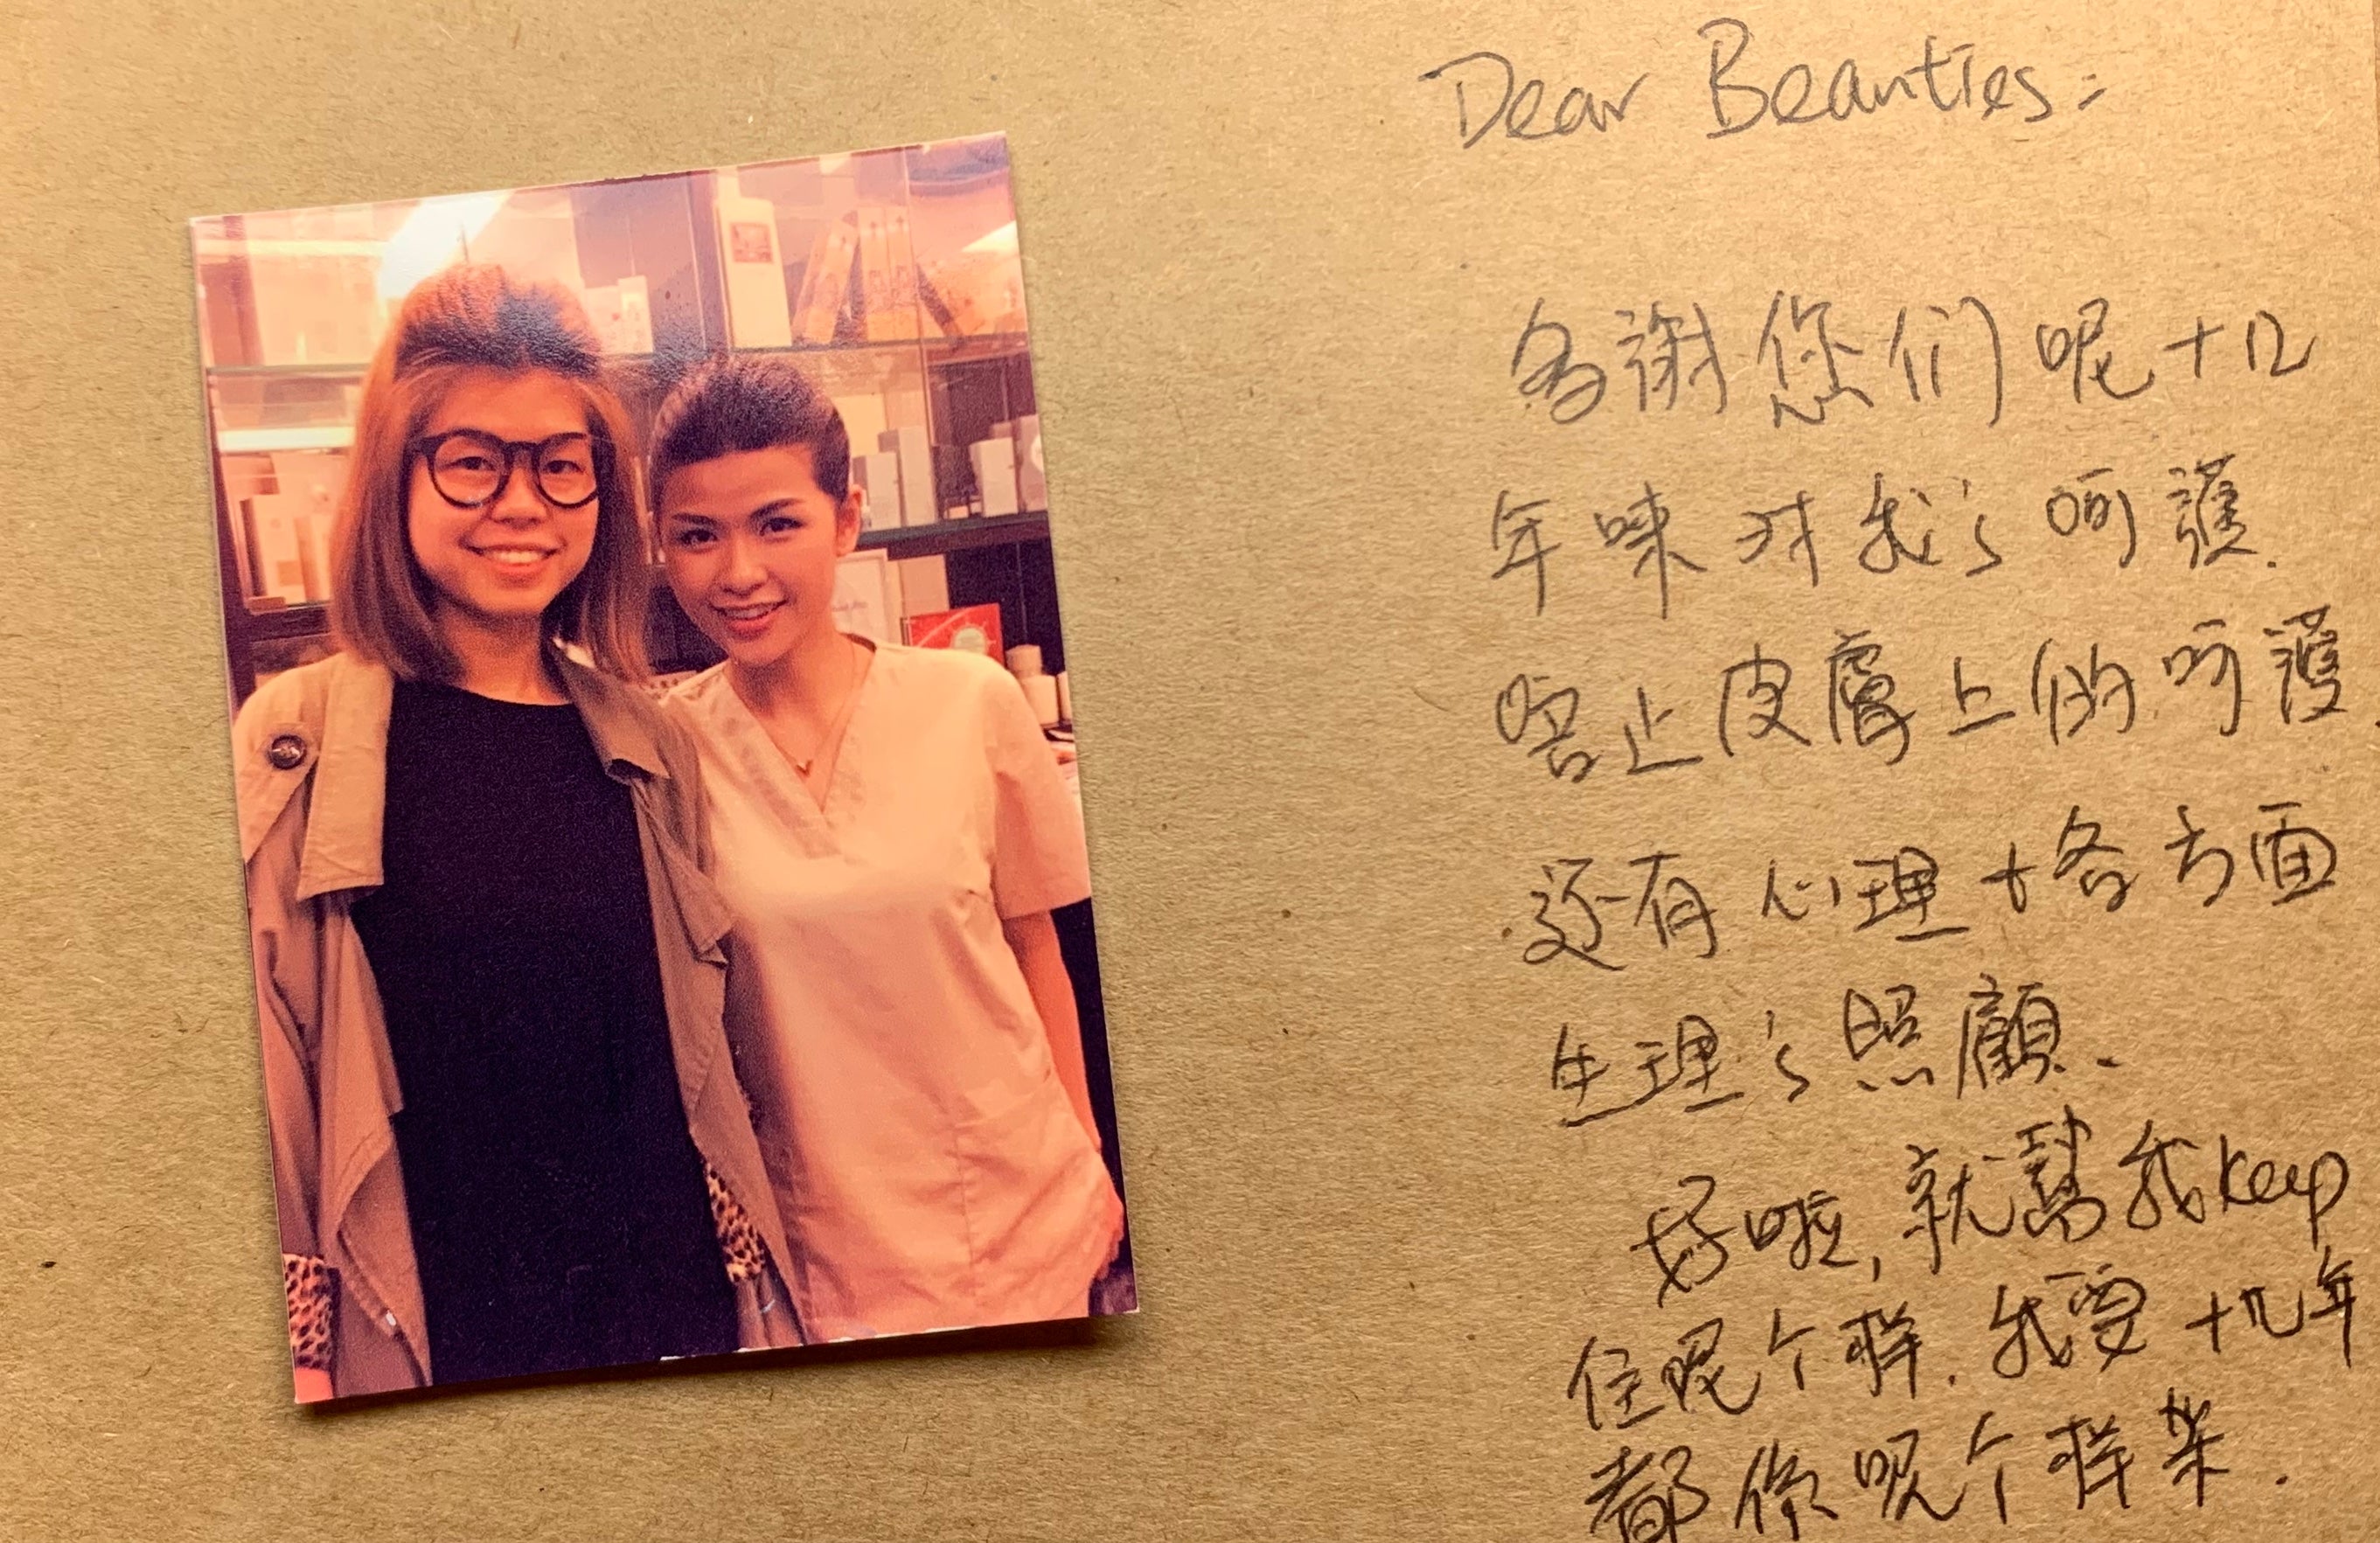 Dear Beauties:
多謝您们呢十几
年嚟对我's 呵護.
唔止皮膚上的呵護.
还有心理+各方面
生理's 照顧.
好啦,就幫我keep
住呢个样.我要十几年
都係呢个样架.